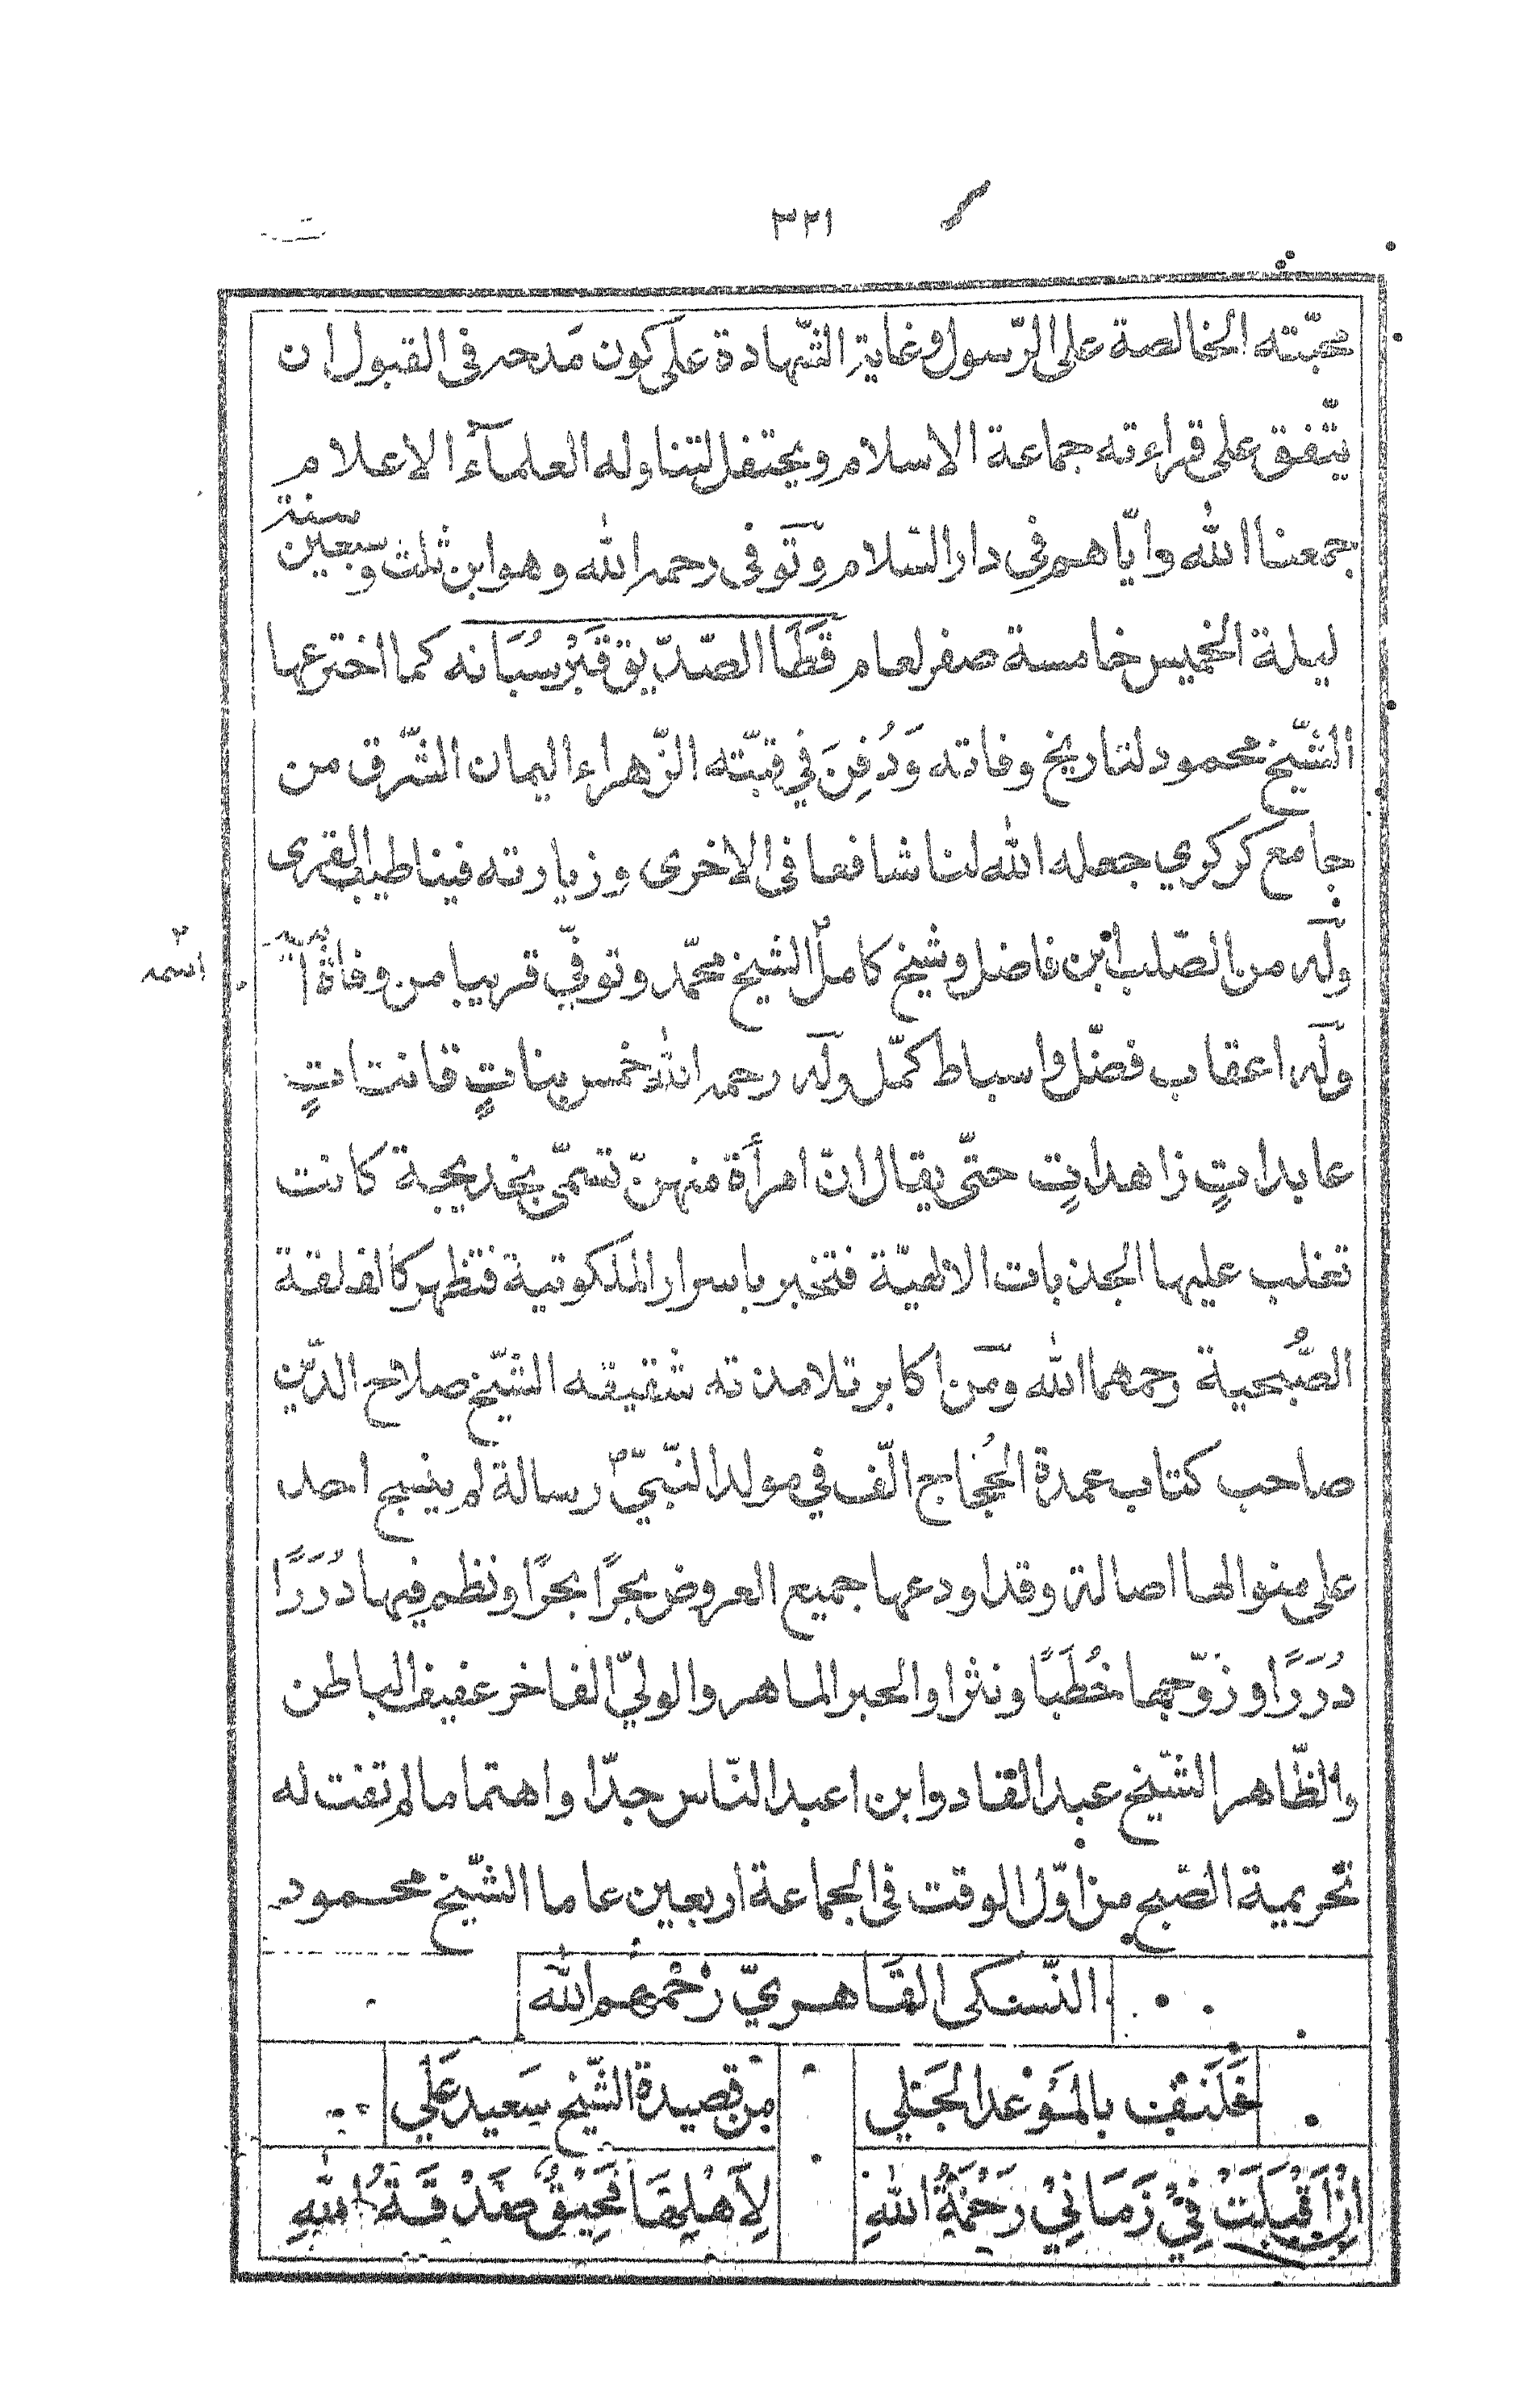 ٣٢١
محبّته الخالصة على الرّسول وغاية الشّهادة على كون مَدحه فى القبول ان
يتّفق على قراءته جماعة الاسلام ويحتفل لتناوله العلمآء الاعلام
جمعنا الله وايّاهم فِي دار السّلام وتوفى رحمه الله وهو ابن ثلث وسبعين سنة
ليلة الخميس خامسة صفر لعام قَطَا الصّدّيق قَبْرُسُبَانه كما اخترعها
الشّيخ محمود لتاريخ وفاته وَدُفِنَ فِي قبّته الزّهراء اليمان الشّرق من
جامع كركري جعله الله لنا شافعا فى الاخرى وزيارته فينا طيب القرى
وله من الصّلب ابن فاضل وشيخ كامل الشيخ محمّد وتوفّي قريبا من وفاة
اسمه
وله اعقاب فضّل واسباط كمّل وله رحمه الله خمس بناتٍ قانتاتٍ
عابداتٍ زاهداتٍ حتّى يقال انّ امرأة منهنّ تسمّى بخديجة كانت
تغلب عليها الجذبات الالهيّة فتخبر باسرار الملكوتية فتظهر كالفلقة
الصُّبحية رحمهما الله ومن اكابر تلامذته شقيقه الشّيخ صلاح الدّين
صاحب كتاب عمدة الحُجّاج الّف في مولد النّبيّ رسالة لم ينسج احد
على منوالها اصالة وقد اودعها جميع العروض بحرًا بحرًا ونظم فيها دُرَرًا
دُرَرًا وزوّجها خُطَبًا ونثرا والحبر الماهر والوليّ الفاخر عفيف الباطن
والظّاهر الشّيخ عبد القادر ابن اعبد النّاس جدّا واهتماما لم تفت له
تحريمية الصّبح من اوّل الوقت فى الجماعة اربعين عاما الشّيخ محمود
النّسكى القَاهريّ رَحْمهم الله
بالمَوْعد الجَلي
مِن قصيدة الشّيخ سَعيد عَلي
فِيْ زَمَانِيْ رَحْمَةُ اللهِ
لِاَهْلِهَا صَدْقَةُ اللهِ